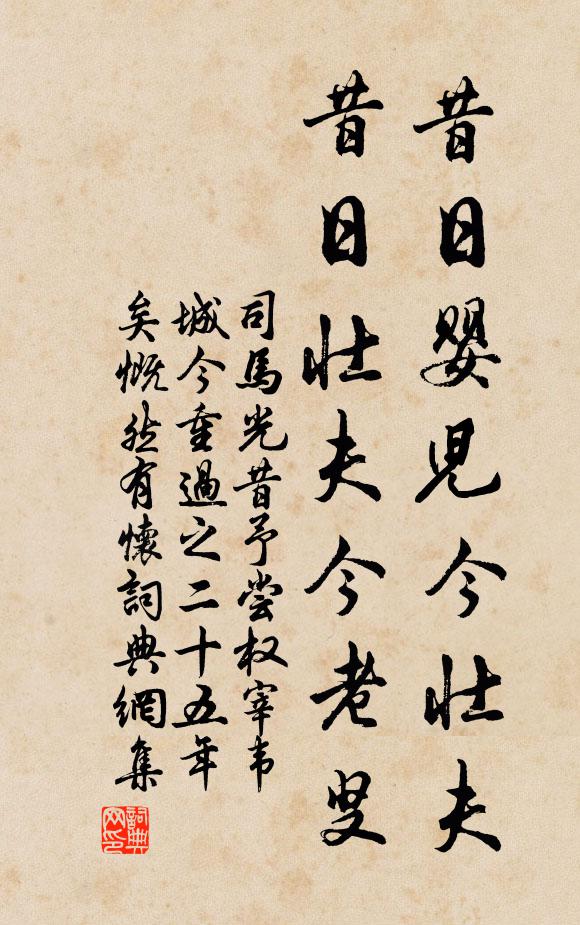 昔日嬰児今壮夫
昔日壮夫今老叟
司馬光昔予尝权宰韦
城今重過之二十五年
矣慨然有懷詞典網集
詞典网印